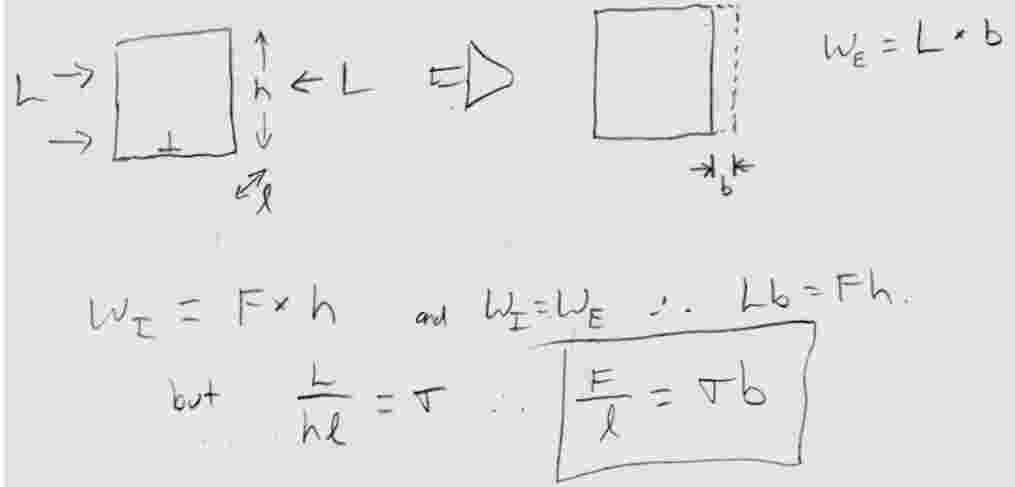 L → h ← L ⇒ W_E = L × b
→ ⊥
l b
W_I = F × h and W_I = W_E ∴ Lb = Fh.
but L/hl = σ ∴ F/l = σb